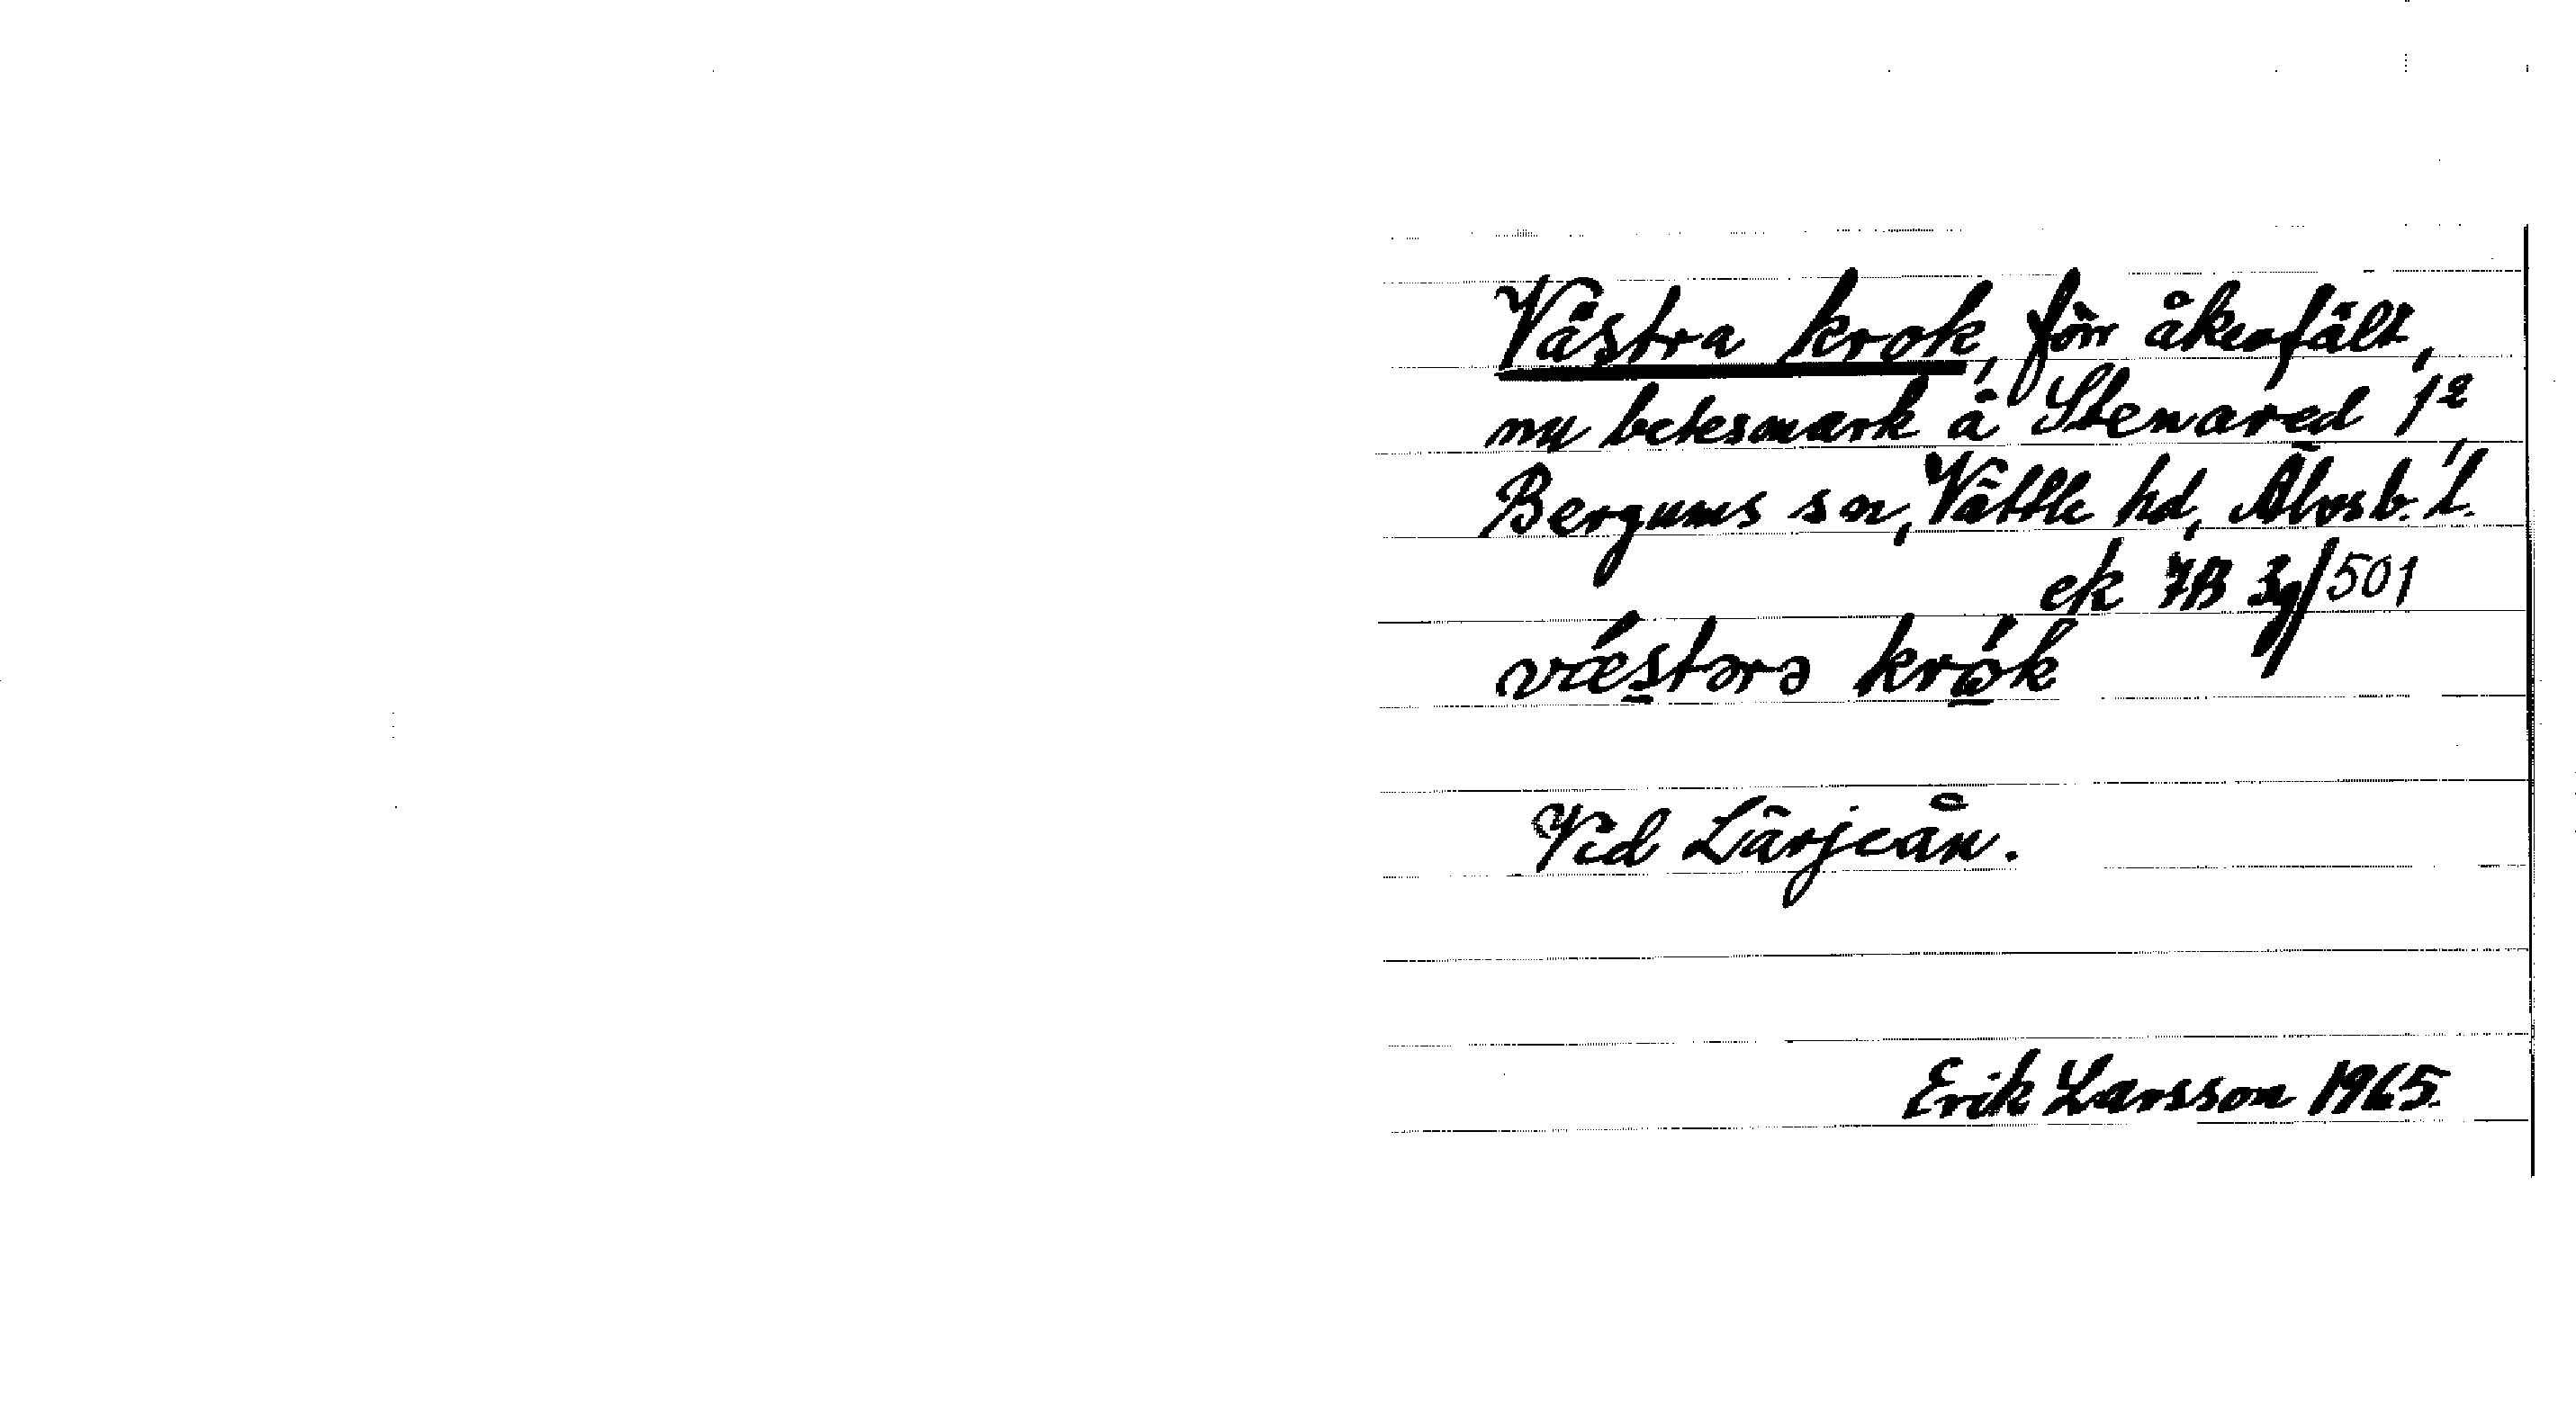 Västra krok, förr åkerfält,
nu betesmark å Stenared 1²,
Bergums sn, Vättle hd, Älvsb. l.
ek 7B 3g/501
vǽstərə krók
Vid Lärjeån.
Erik Larsson 1965.